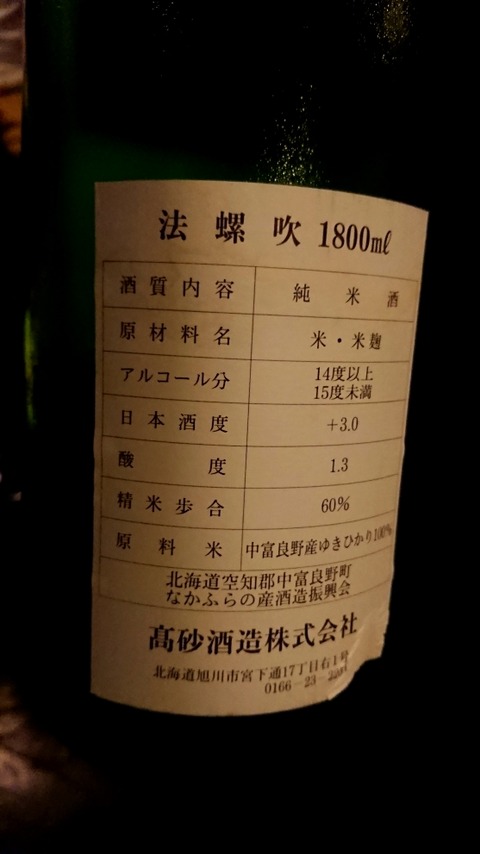 法螺吹 1800mℓ
酒質内容 純米酒
原材料名 米・米麹
アルコール分 14度以上
15度未満
日本酒度 +3.0
酸度 1.3
精米歩合 60%
原料米 中富良野産ゆきひかり100%
北海道空知郡中富良野町
なかふらの産酒造振興会
髙砂酒造株式会社
北海道旭川市宮下通17丁目右1号
0166-23-